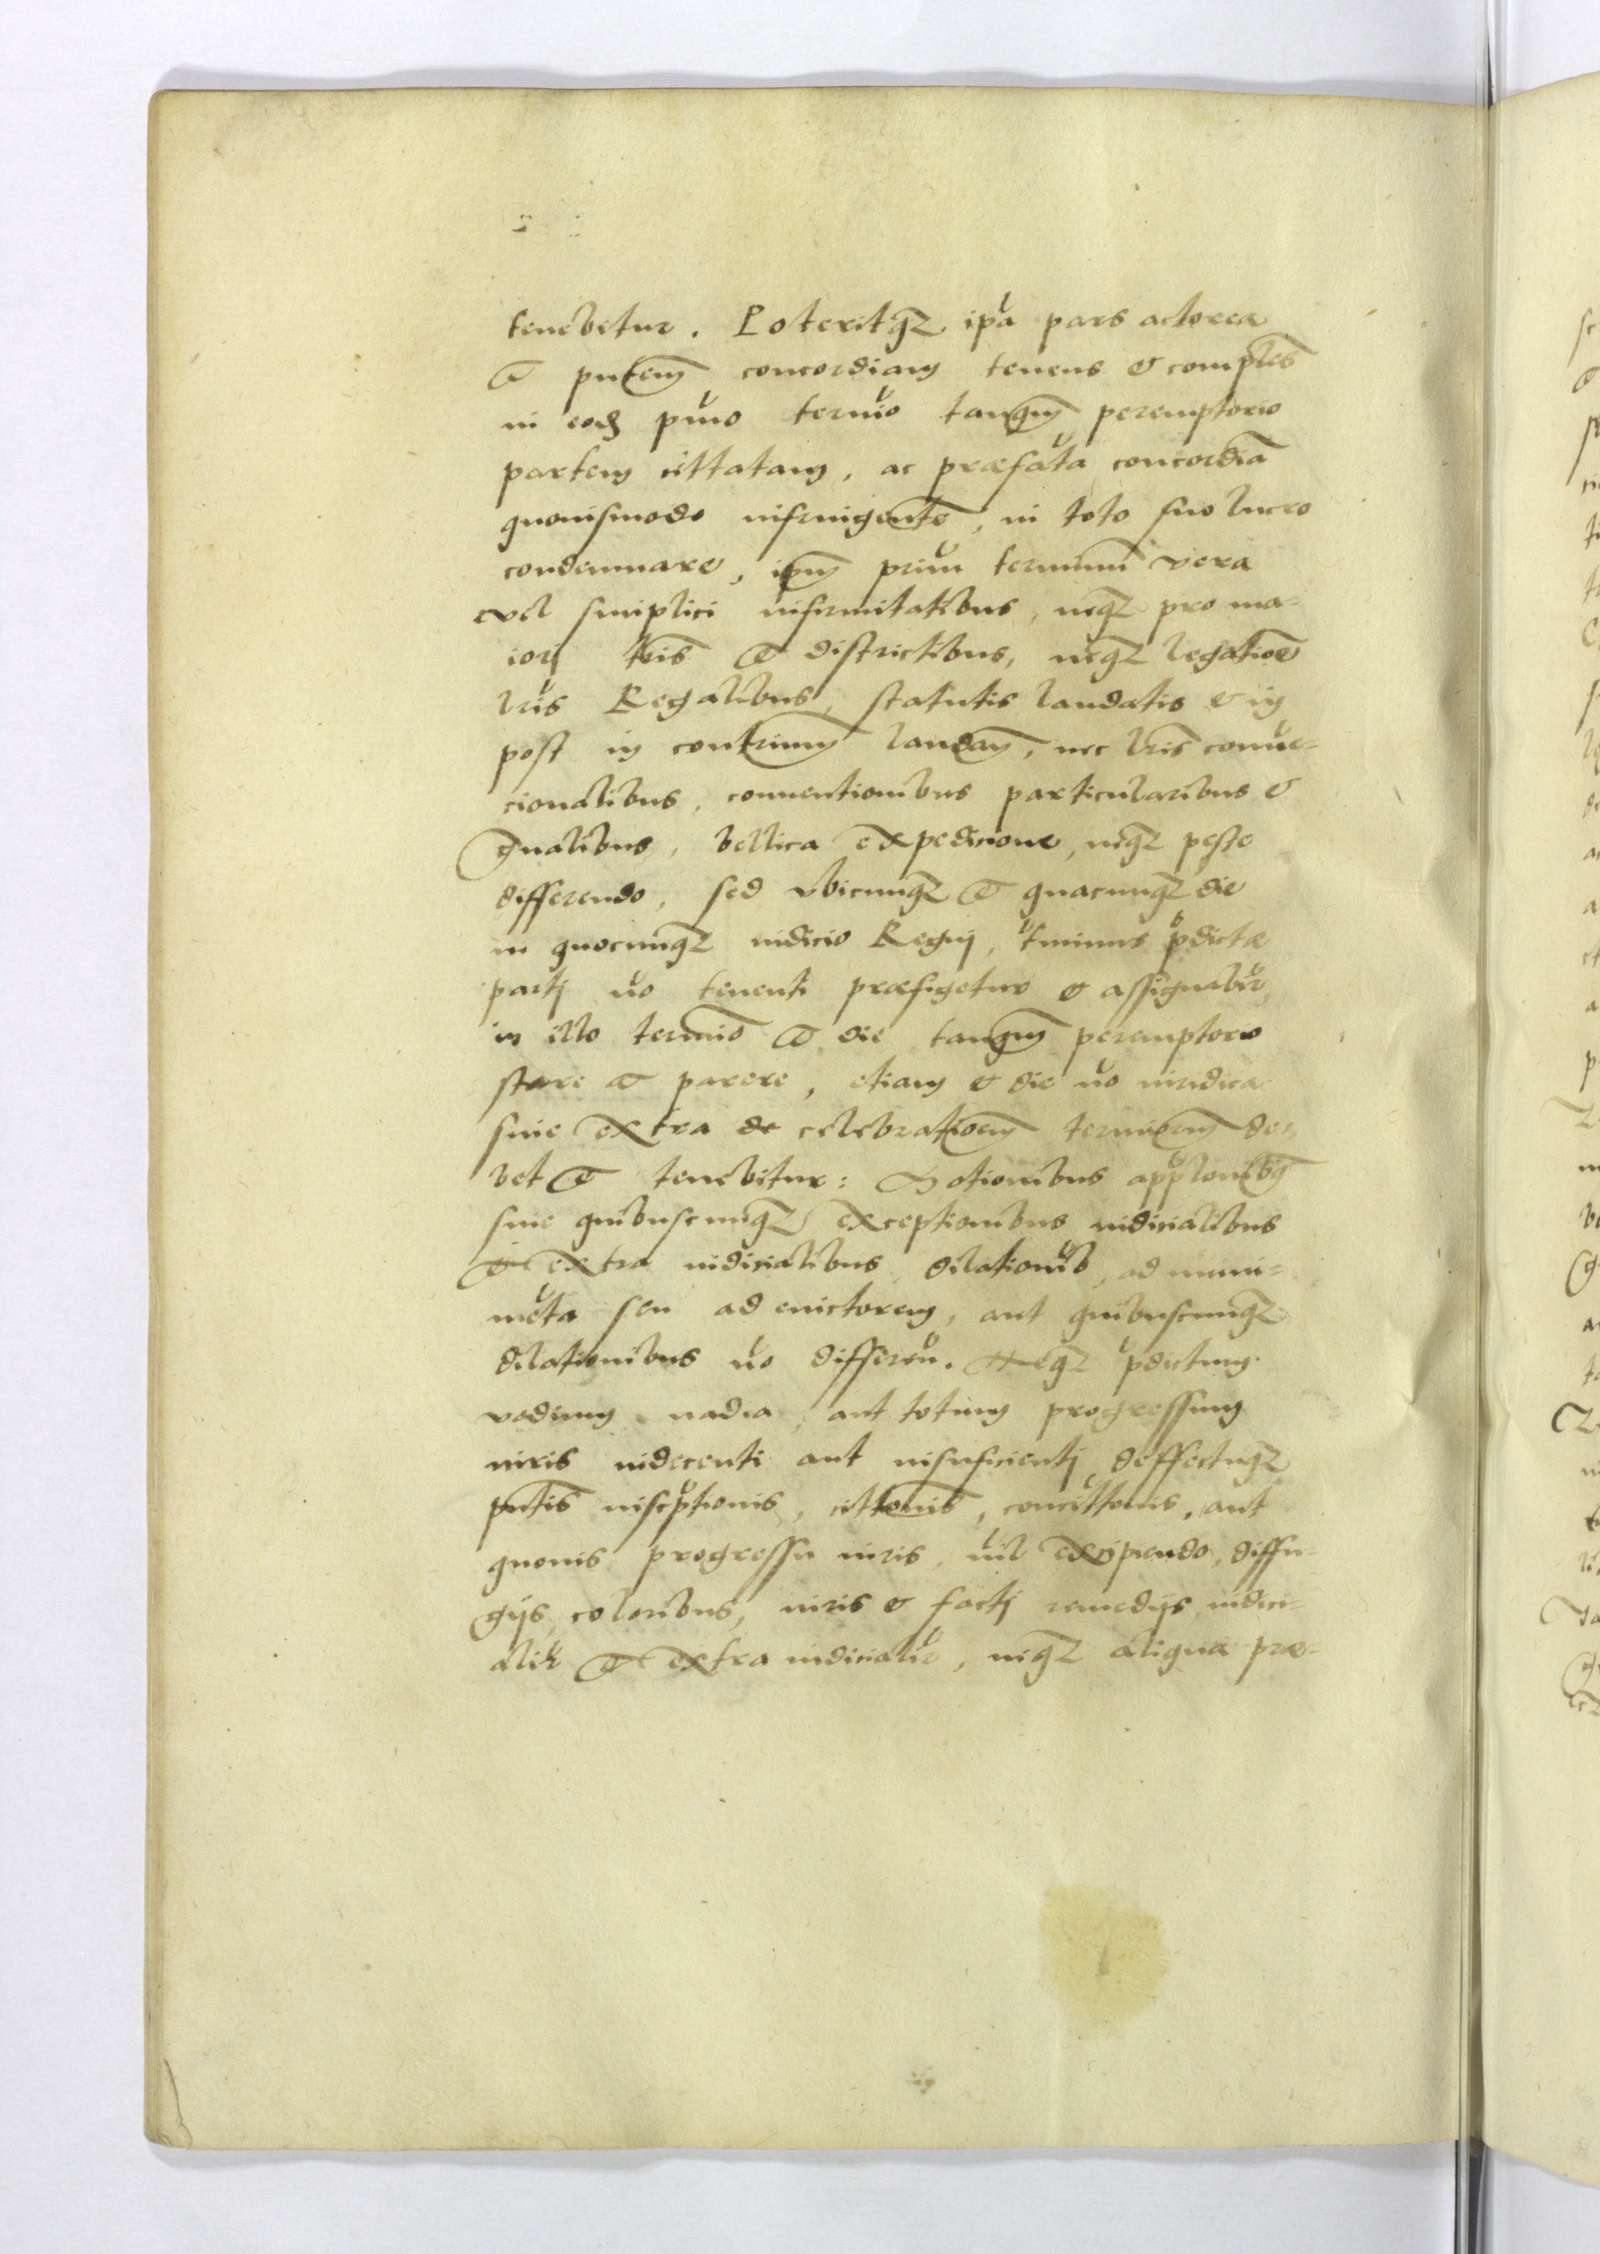 tenebetur. Poteritq3 ip̃a pars actorea
et pñtem concordiam tenens et compleñs
in eodẽ pr̃mo ter̃mo tanq̃m peremptorio
partem cittatam, ac præfãta concordiã
quouismodo infringentẽ, in toto suo lucro
condemnare, ip̃m prim̃ terminũ vera
vel simplici infirmitatibus, neq3 pro ma-
iorj tris̃ et districtibus, neq3 legatioẽ
lrĩs Regalibus, statutis laudatis et in
post in contrarium̃ laudañ, nec lris̃ conue-
cionalibus, conuentionibus particularibus et
gñalibus, bellica expedicione, neq3 peste
differendo, sed vbicunq3 et quacunq3 die
in quocunq3 iudicio Regnj, tr̃minus p̃dictæ
partj nõ tenenti præfigetur et assignabĩr,
in illo termiõ et die tanq̃m peremptorio
stare et parere, etiam et die nõ iuridica
siue extra de celebratioẽm termiorũm de-
bet et tenebitur: Motionibus app̃lonibq̃
siue quibuscunq3 exceptionibus iudicialibus
et extra iudicialibus, dilationib̃, ad muni-
mẽta seu ad euictorem, aut quibuscunq3
dilationibus nõ differeñ. Neq3 p̃dictum
vadium nadia, aut totum progressum
iuris indecenti aut insuficientj, deffectuq3
pñtis inscp̃tionis, cittonis̃, concittonis, aut
quouis progressu iuris, nĩl excipiendo, diffu-
gijs, coloribus, iuris et factj remedijs, iudici-
alir̃ et extra iudicialir̃, neq3 aliqua præ-